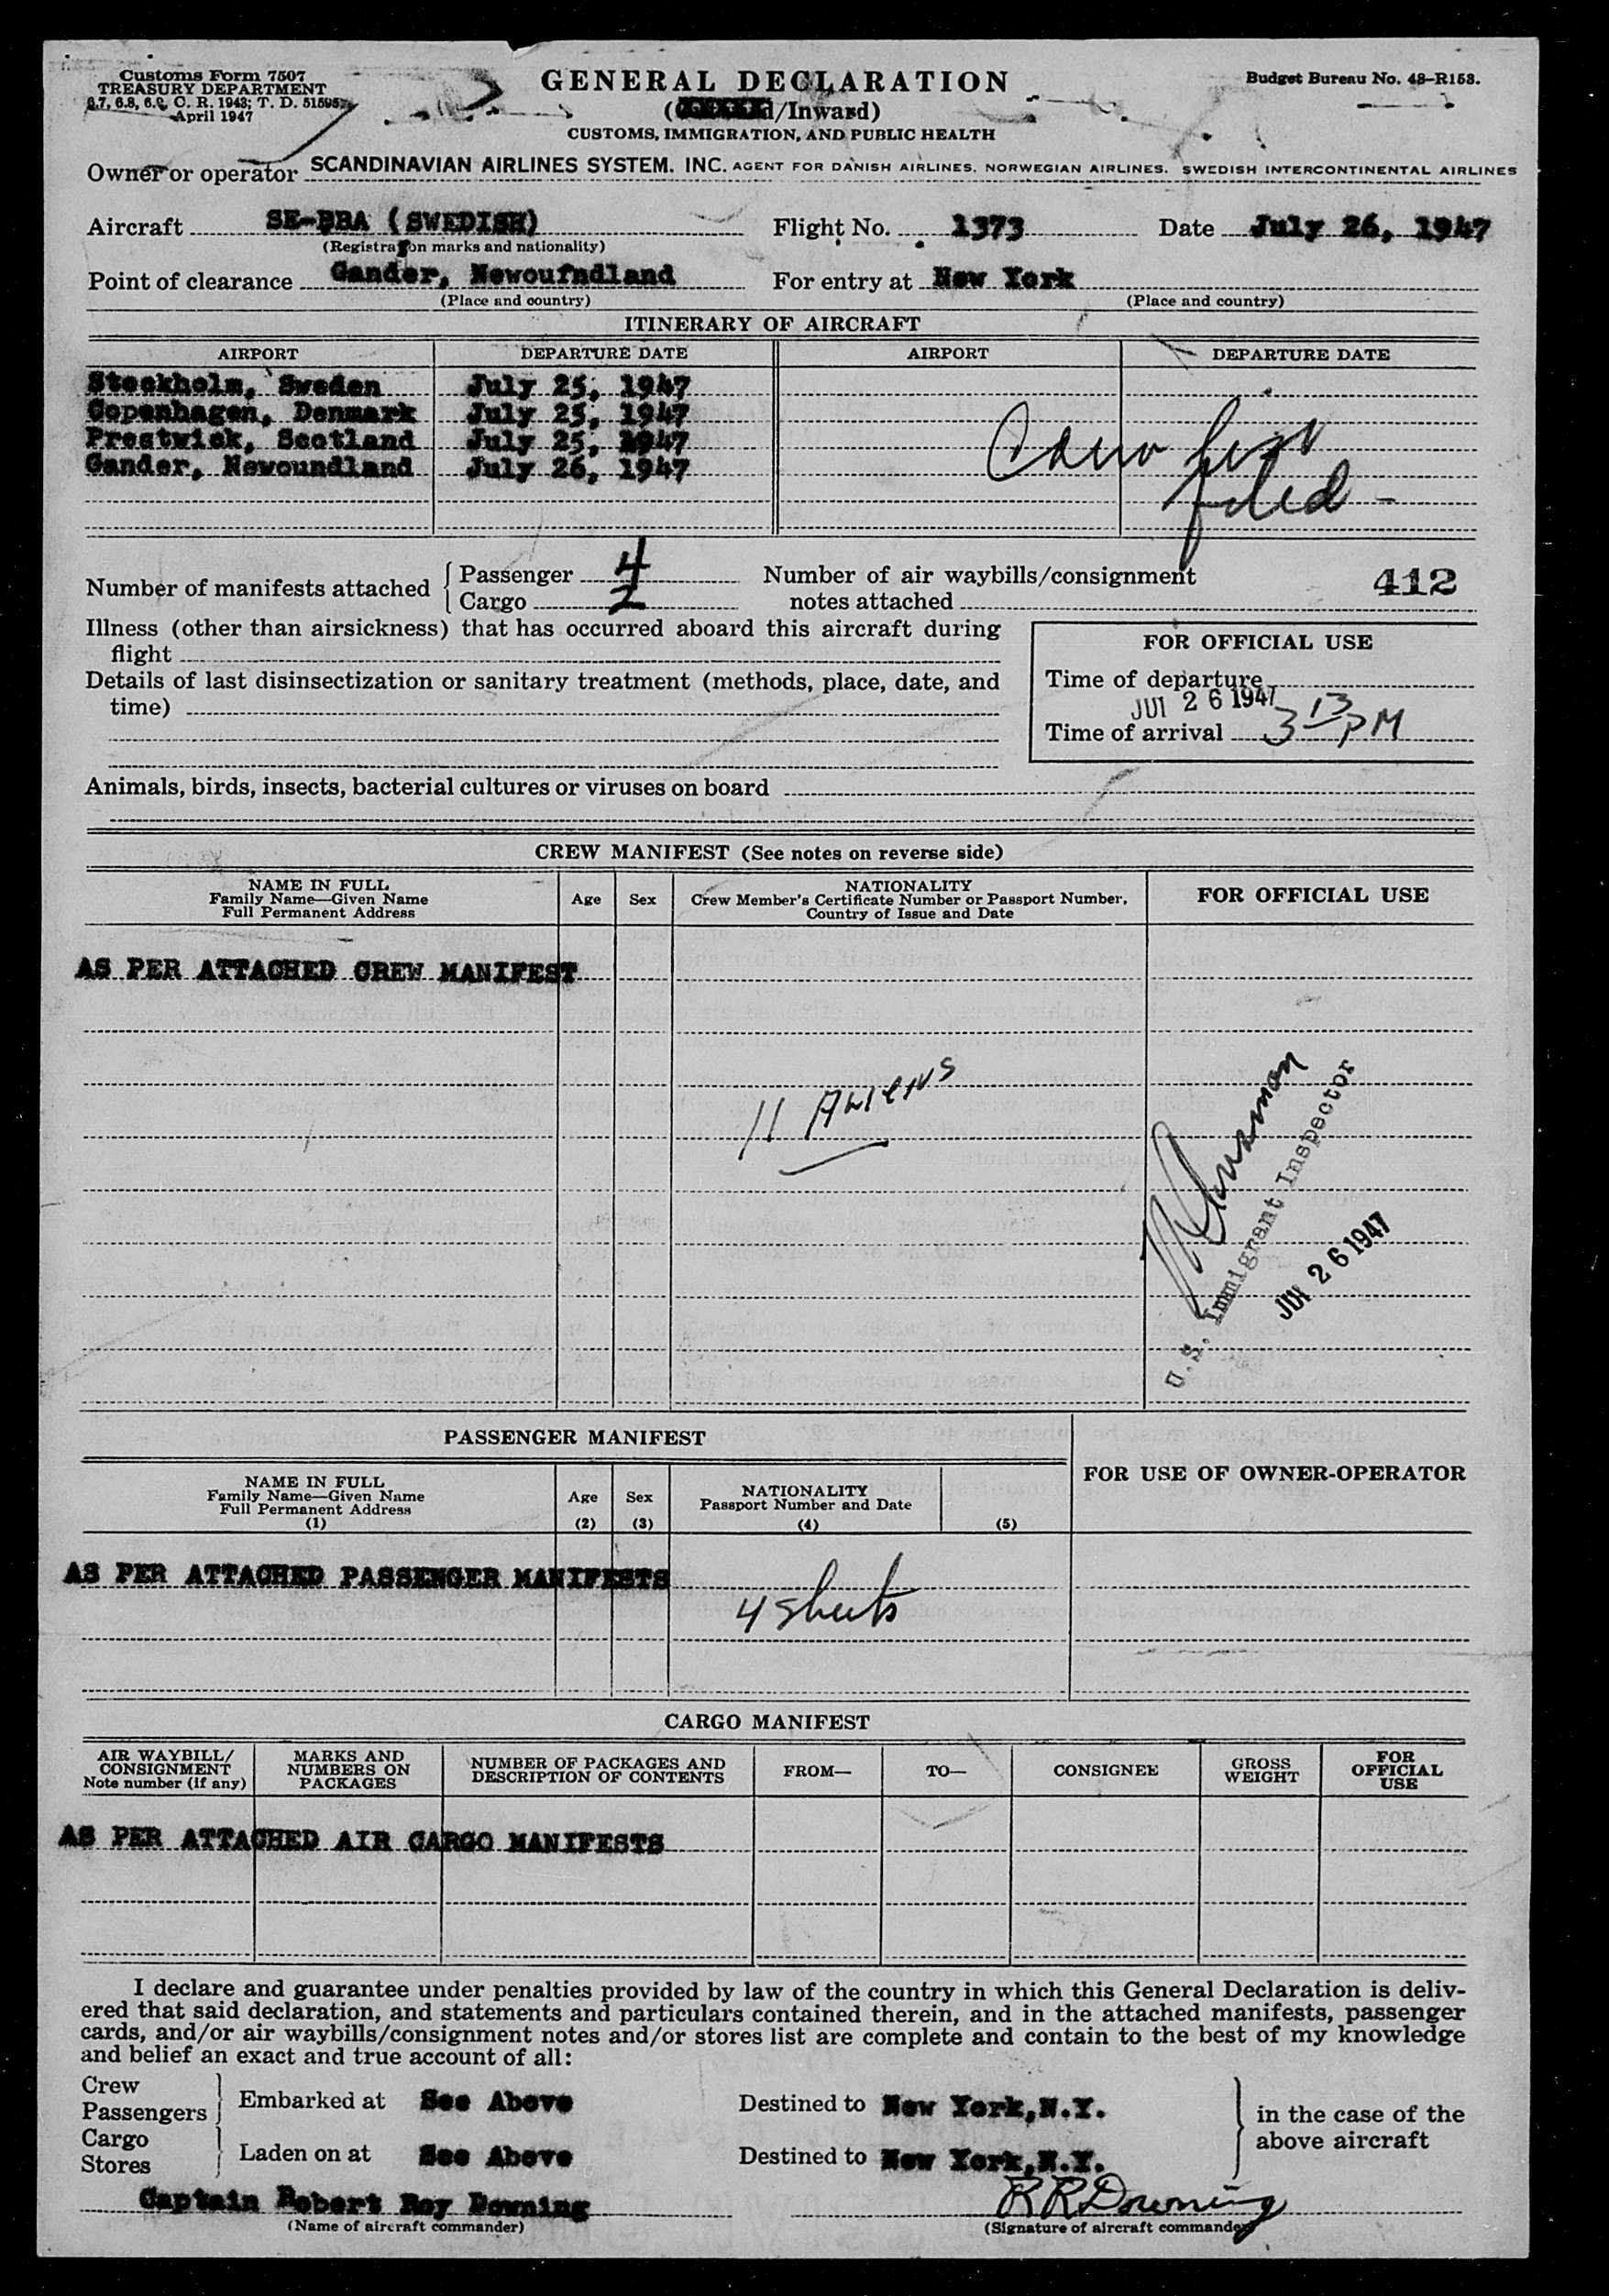 Customs Form 7507
TREASURY DEPARTMENT
6.7, 6.8, 6.9, C. R. 1943; T. D. 51595
April 1947
GENERAL DECLARATION
d/Inward)
CUSTOMS, IMMIGRATION, AND PUBLIC HEALTH
Budget Bureau No. 48-R158.
Owner or operator SCANDINAVIAN AIRLINES SYSTEM. INC. AGENT FOR DANISH AIRLINES. NORWEGIAN AIRLINES. SWEDISH INTERCONTINENTAL AIRLINES
Aircraft SE-BBA (SWEDISH) Flight No. 1373 Date July 26, 1947
(Registration marks and nationality)
Point of clearance Gander, Newoufndland For entry at New York
(Place and country) (Place and country)
ITINERARY OF AIRCRAFT
AIRPORT DEPARTURE DATE AIRPORT DEPARTURE DATE
Stockholm, Sweden July 25, 1947
Copenhagen, Denmark July 25, 1947
Prestwick, Scotland July 25, 1947
Gander, Newoundland July 26, 1947
filed -
Number of manifests attached Passenger 4
Cargo 2
Number of air waybills/consignment
notes attached
412
Illness (other than airsickness) that has occurred aboard this aircraft during
flight
Details of last disinsectization or sanitary treatment (methods, place, date, and
time)
FOR OFFICIAL USE
Time of departure
JUL 26 1947
Time of arrival 3 13 PM
Animals, birds, insects, bacterial cultures or viruses on board
CREW MANIFEST (See notes on reverse side)
NAME IN FULL
Family Name—Given Name
Full Permanent Address
Age
Sex
NATIONALITY
Crew Member's Certificate Number or Passport Number,
Country of Issue and Date
FOR OFFICIAL USE
AS PER ATTACHED CREW MANIFEST
11 Aliens
U.S. Immigrant Inspector
JUL 26 1947
PASSENGER MANIFEST
NAME IN FULL
Family Name—Given Name
Full Permanent Address
(1)
Age
(2)
Sex
(3)
NATIONALITY
Passport Number and Date
(4)
(5)
FOR USE OF OWNER-OPERATOR
AS PER ATTACHED PASSENGER MANIFESTS
4 sheets
CARGO MANIFEST
AIR WAYBILL/
CONSIGNMENT
Note number (if any)
MARKS AND
NUMBERS ON
PACKAGES
NUMBER OF PACKAGES AND
DESCRIPTION OF CONTENTS
FROM—
TO—
CONSIGNEE
GROSS
WEIGHT
FOR
OFFICIAL
USE
AS PER ATTACHED AIR CARGO MANIFESTS
I declare and guarantee under penalties provided by law of the country in which this General Declaration is deliv-
ered that said declaration, and statements and particulars contained therein, and in the attached manifests, passenger
cards, and/or air waybills/consignment notes and/or stores list are complete and contain to the best of my knowledge
and belief an exact and true account of all:
Crew
Passengers
Embarked at See Above Destined to New York,N.Y.
Cargo
Stores
Laden on at See Above Destined to New York,N.Y.
in the case of the
above aircraft
Captain Robert Roy Downing
(Name of aircraft commander)
R R Downing
(Signature of aircraft commander)